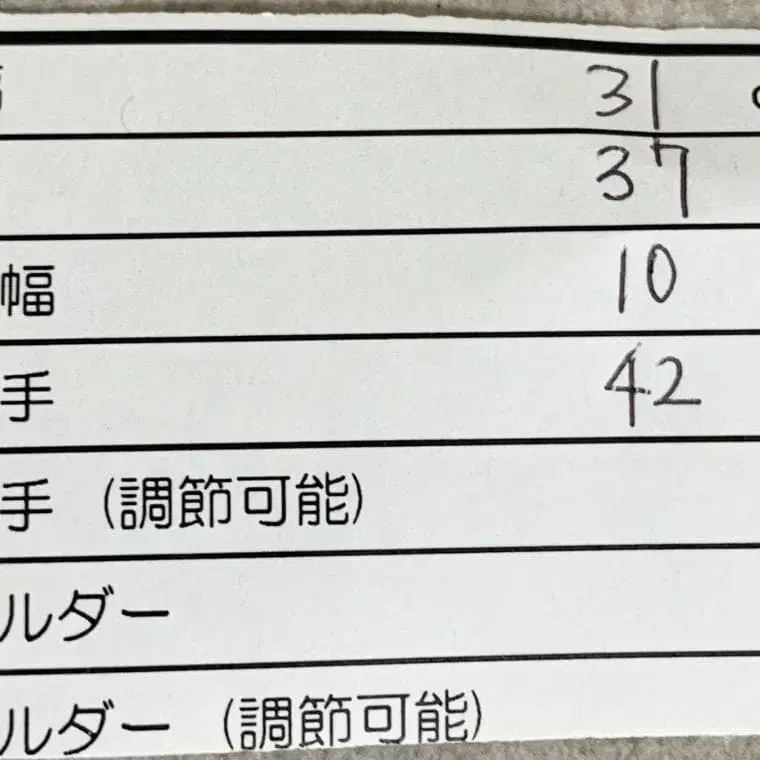 31
37
幅 10
手 42
手 (調節可能)
ルダー
ルダー (調節可能)